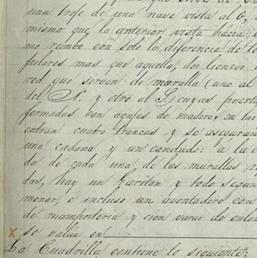 una trose de una nave vista al O, 
mismo que la anterior, vista hacia
mo rumbo con solo la diferencia de
pulares mas que aquella, dos lienzos
red que sirven de muralla (uno al
del N. y otro al S.) cuyas puertas
formadas con agujas de madera, en las
entran cuatro trancas y se aseguran
una cadena y un candado: a la
da de cada una de las murallas
das, hay un Garitón y todo segun
menor, e incluso un aventadero con
de mampostería y cien varas de
X se valua en
6a Cuadrilla contiene lo siguiente: